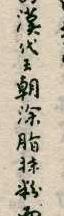 漢代王朝涂脂抹粉